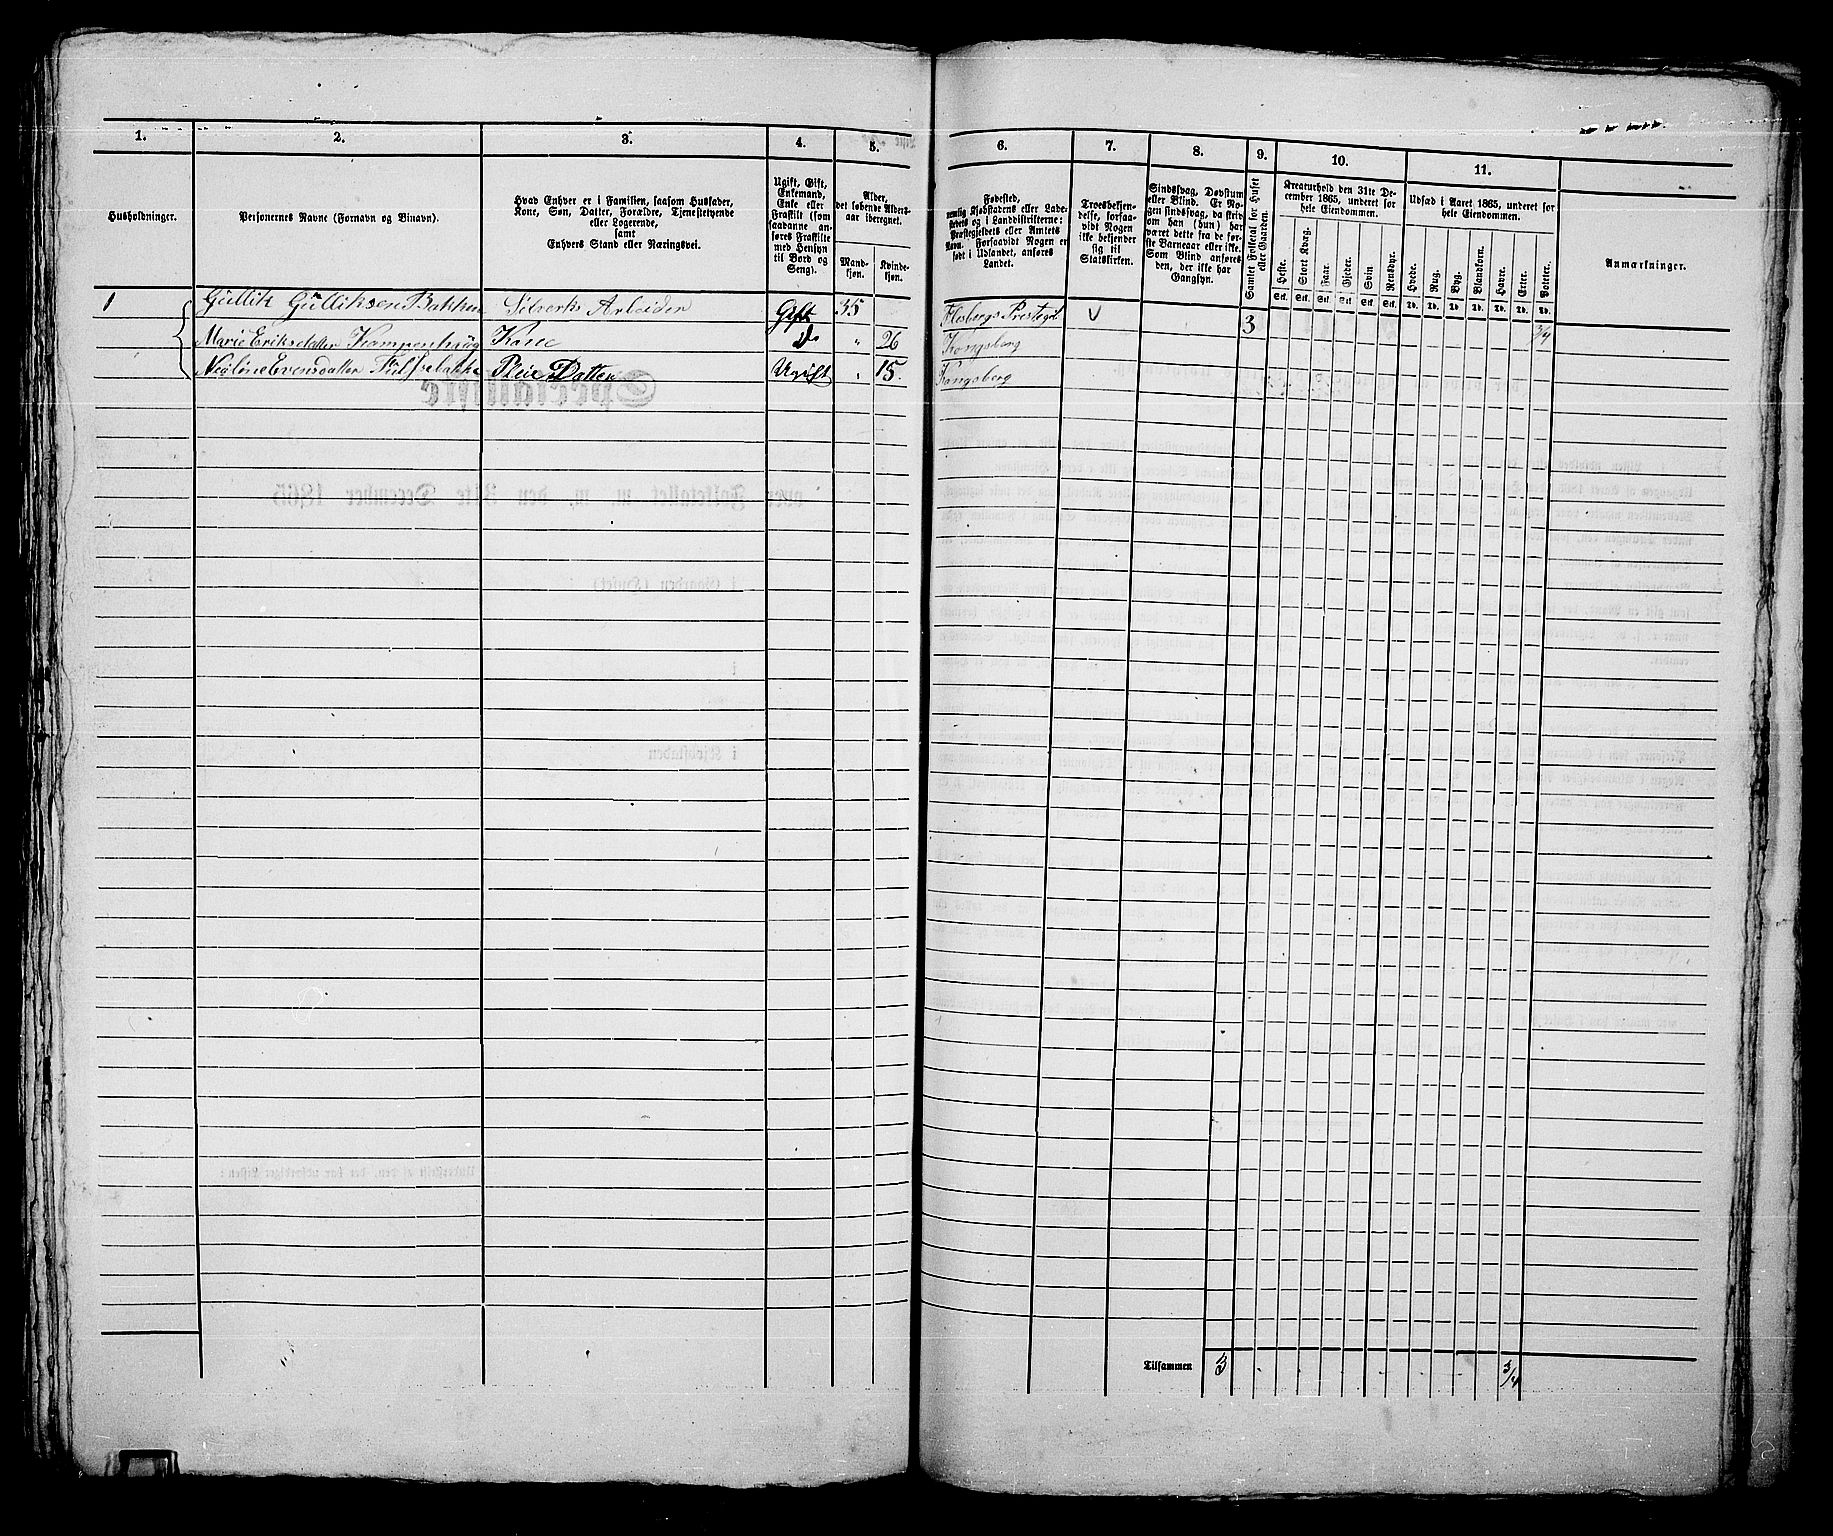 1. 2. 3. 4. 5. 6. 7. 8. 9. 10. 11.
Husholdninger.
Personernes Navne (Fornavn og Binavn).
Hvad Enhver er i Familien, saasom Husfader,
Kone, Søn, Datter, Forældre, Tjenestetyende
eller Logerende,
samt
Enhvers Stand eller Næringsvei.
Ugift, Gift,
Enkemand,
Enke eller
Fraskilt (som
saadanne an-
føres Fraskilte
med Hensyn
til Bord og
Seng).
Alder,
det løbende Alders-
aar iberegnet.
Mand-
kjøn.
Kvinde-
kjøn.
Fødested,
nemlig Kjøbstadens eller Lade-
stedets og i Landdistrikterne:
Præstegjeldets eller Amtets
Navn. Forsaavidt Nogen er
født i Udlandet, anføres
Landet.
Troesbekjen-
delse, forsaa-
vidt Nogen
ikke bekjender
sig til
Statskirken.
Sindssvag, Døvstum
eller Blind. Er No-
gen sindssvag, da skriv
om han (hun) har
været dette fra de før-
ste Barneaar eller ikke.
Som Blind anføres
den, der ikke har
Gangsyn.
Samlet Folketal for Huset
eller Gaarden.
Kreaturhold den 31te De-
cember 1865, underet for
hele Eiendommen.
Heste. Stort Kvæg. Faar. Gjeder. Svin Rensdyr.
Stk. Stk. Stk. Stk. Stk. Stk.
Udsæd i Aaret 1865, underet for
hele Eiendommen.
Hvede. Rug. Byg. Blandkorn. Havre. Erter. Poteter.
Td. Td. Td. Td. Td. Td. Td.
Anmærkninger.
1 Gullik Gulliksen Bakken Sölverks Arbeider Gift 35 Flesbergs Prestegd V 3 3/4
Marie Eriksdatter Kampenhaug Kone do " 26 Kongsberg
Evensdatter Pleie Datter Ugift " 15. Kongsberg
Tilsammen 3 3/4